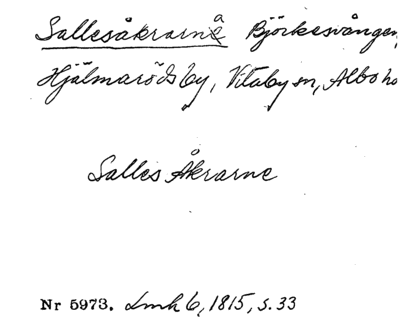 Sallesåkrarna Björkesvången,
Hjälmaröds by, Vitaby sn, Albo hd
Salles Åkrarne
Nr 5973. Lmh 6, 1815, s. 33